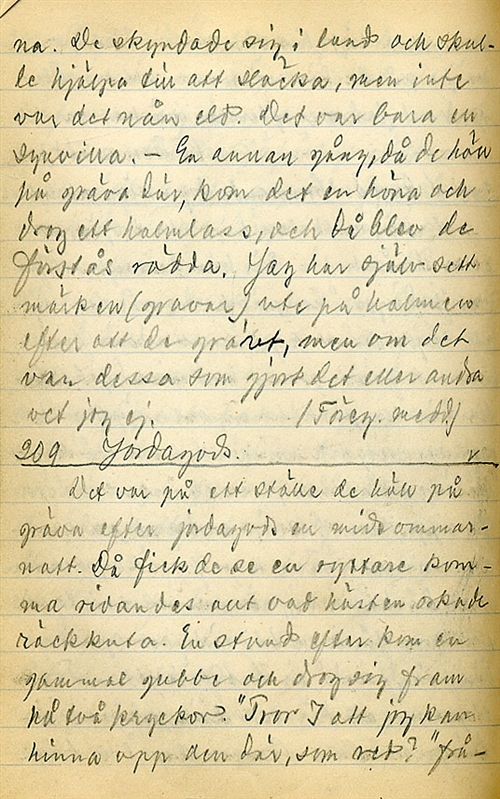 na. De skyndade sig i land och skul-
le hjälpa till att släcka, men inte
var det nån eld. Det var bara en
synvilla. – En annan gång, då de höll
på gräva där, kom det en höna och
drog ett halmlass, och då blev de
förstås rädda. Jag har själv sett
märken (gravar) ute på holmen
efter att de grävt, men om det
var dessa som gjort det eller andra
vet jag ej. (Föreg. medd)
209 Jordagods. v
Det var på ett ställe de höll på
gräva efter jordagods en midsommar-
natt. Då fick de se en ryttare kom-
ma ridandes allt vad hästen orkade
räckkuta. En stund efter kom en
gammal gubbe och drog sig fram
på två kryckor. "Tror I att jag kan
hinna opp den där, som red?" frå-